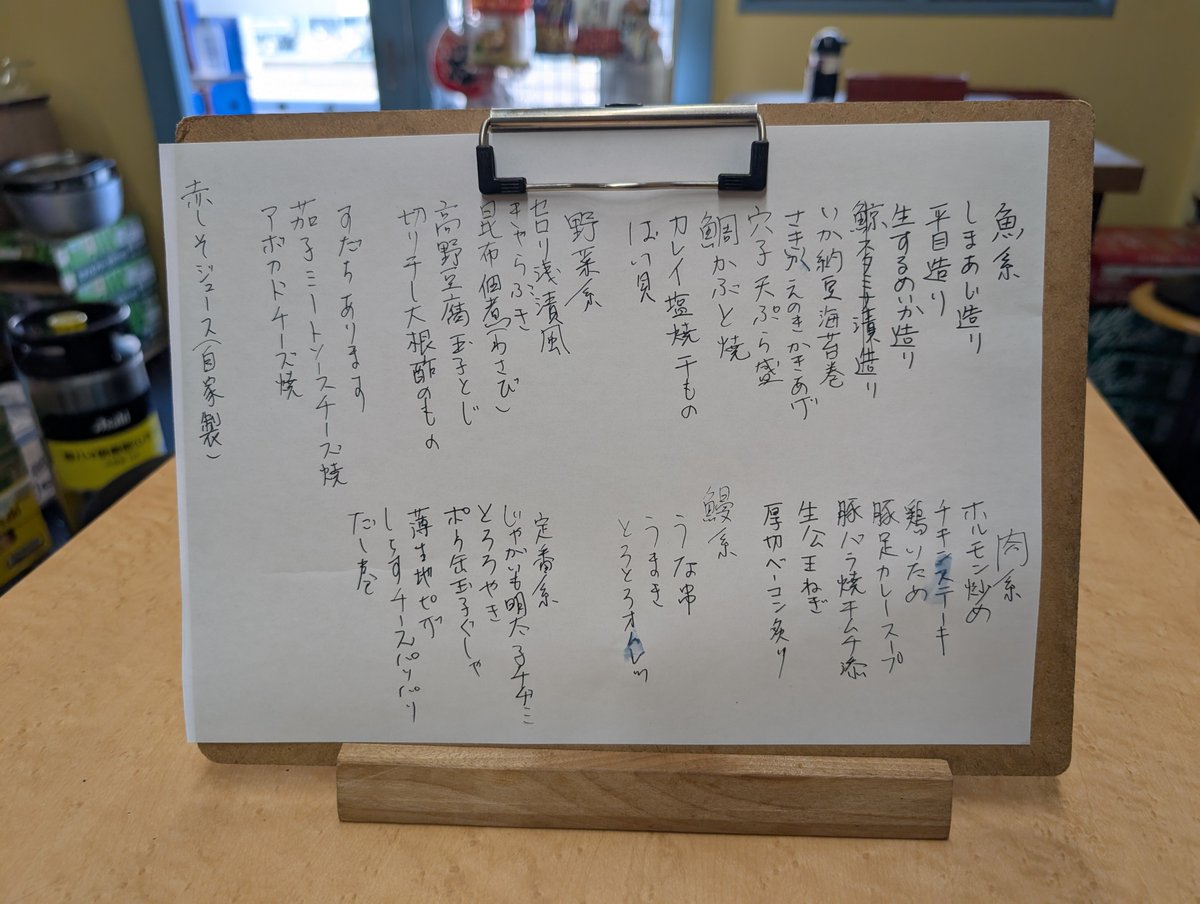 魚系
しまあじ造り
平目造り
生するめいか造り
鯨スタミナ漬造り
いか納豆海苔巻
さきいかえのきかきあげ
穴子天ぷら盛
鯛かぶと焼
カレイ塩焼干もの
ばい貝
野菜系
セロリ浅漬風
きゃらぶき
昆布佃煮(わさび)
高野豆腐玉子とじ
切り干し大根酢のもの
すだちあります
茄子ミートソースチーズ焼
アボカドチーズ焼
赤しそジュース(自家製)
肉系
ホルモン炒め
チキンステーキ
鶏いため
豚足カレースープ
豚バラ焼キムチ添
生ハム玉ねぎ
厚切ベーコン炙り
鰻系
うな串
うまき
とろとろオムレツ
定番系
じゃがいも明太子チヂミ
とろろやき
ポーク缶玉子ぐしゃ
薄生地ピザ
しらすチーズパリパリ
だし巻
Asahi